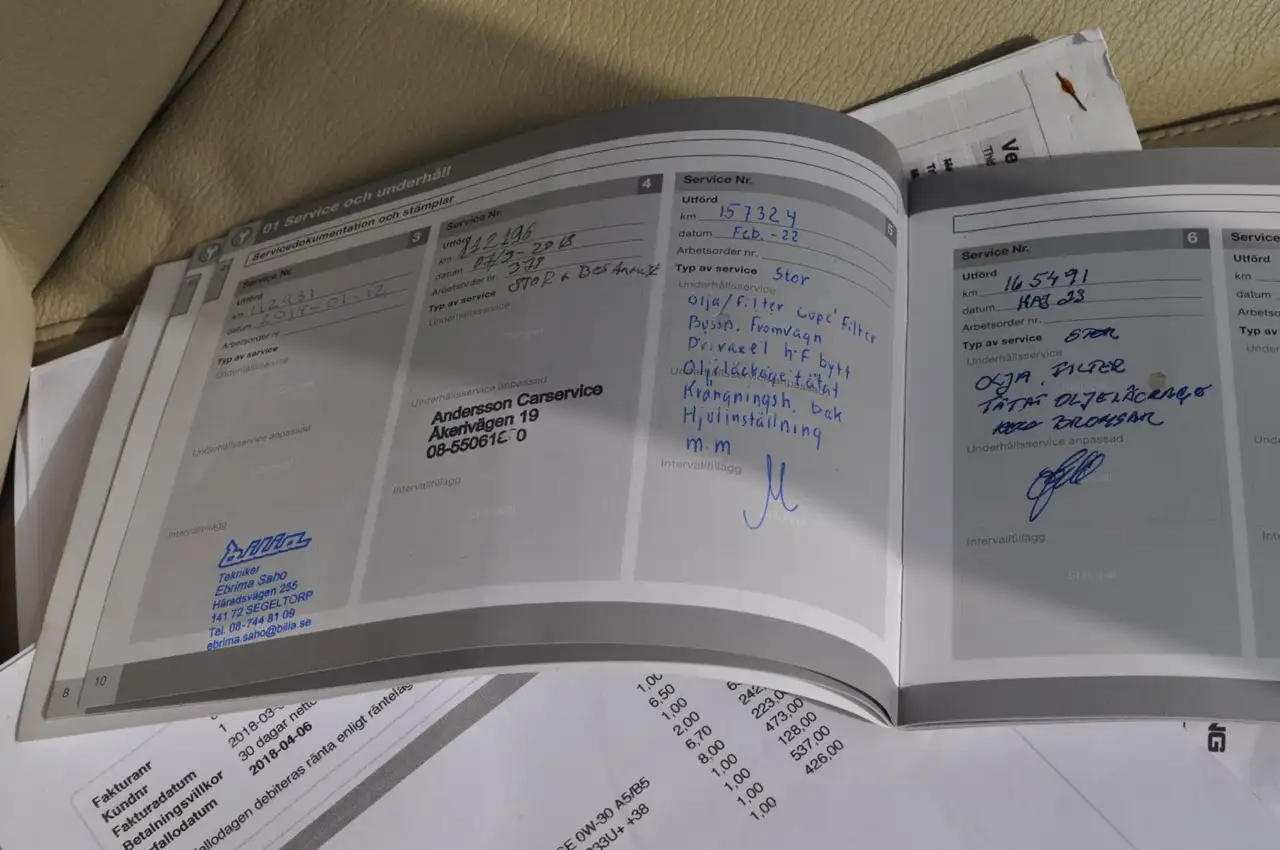 01 Service och underhåll
Servicedokumentation och stämplar
3
Service Nr.
Utförd
km 112931
datum 2018-01-12
Arbetsorder nr.
Typ av service
Underhållsservice
Underhållsservice anpassad
Intervalltillägg
bilia
Tekniker
Ebrima Saho
Häradsvägen 255
141 72 SEGELTORP
Tel. 08-744 81 09
ebrima.saho@bilia.se
4
Service Nr.
Utförd
km 122196
datum 07/3-2018
Arbetsorder nr. 378
Typ av service STOR +
Underhållsservice
Underhållsservice anpassad
Andersson Carservice
Åkerivägen 19
Intervalltillägg
5
Service Nr.
Utförd
km 157324
datum Feb.-22
Arbetsorder nr.
Typ av service Stor
Underhållsservice
Olja/filter cupé filter
Byssn. Framvagn
Drivaxel h.f bytt
Oljeläckage tätat
Underhållsservice anpassad
Krängningsh. bak
Hjulinställning
m.m
Intervalltillägg
6
Service Nr.
Utförd
km 165491
datum MAJ 23
Arbetsorder nr.
Typ av service STOR
Underhållsservice
OLJA, FILTER
TÄTAT OLJELÄCKAGE
BROMSAR
Underhållsservice anpassad
Intervalltillägg
Stämpel
Service
Utförd
km
datum
Arbetso
Typ av
8
10
Fakturanr
Kundnr
Fakturadatum
Betalningsvillkor
rfallodatum
1
2018-03-
30 dagar netto
2018-04-06
fallodagen debiteras ränta enligt räntelag
1,00
6,50
1,00
2,00
6,70
8,00
1,00
1,00
1,00
1,00
242,
223,0
473,00
128,00
537,00
426,00
0W-30 A5/B5
33U+ +38
NG
Ve